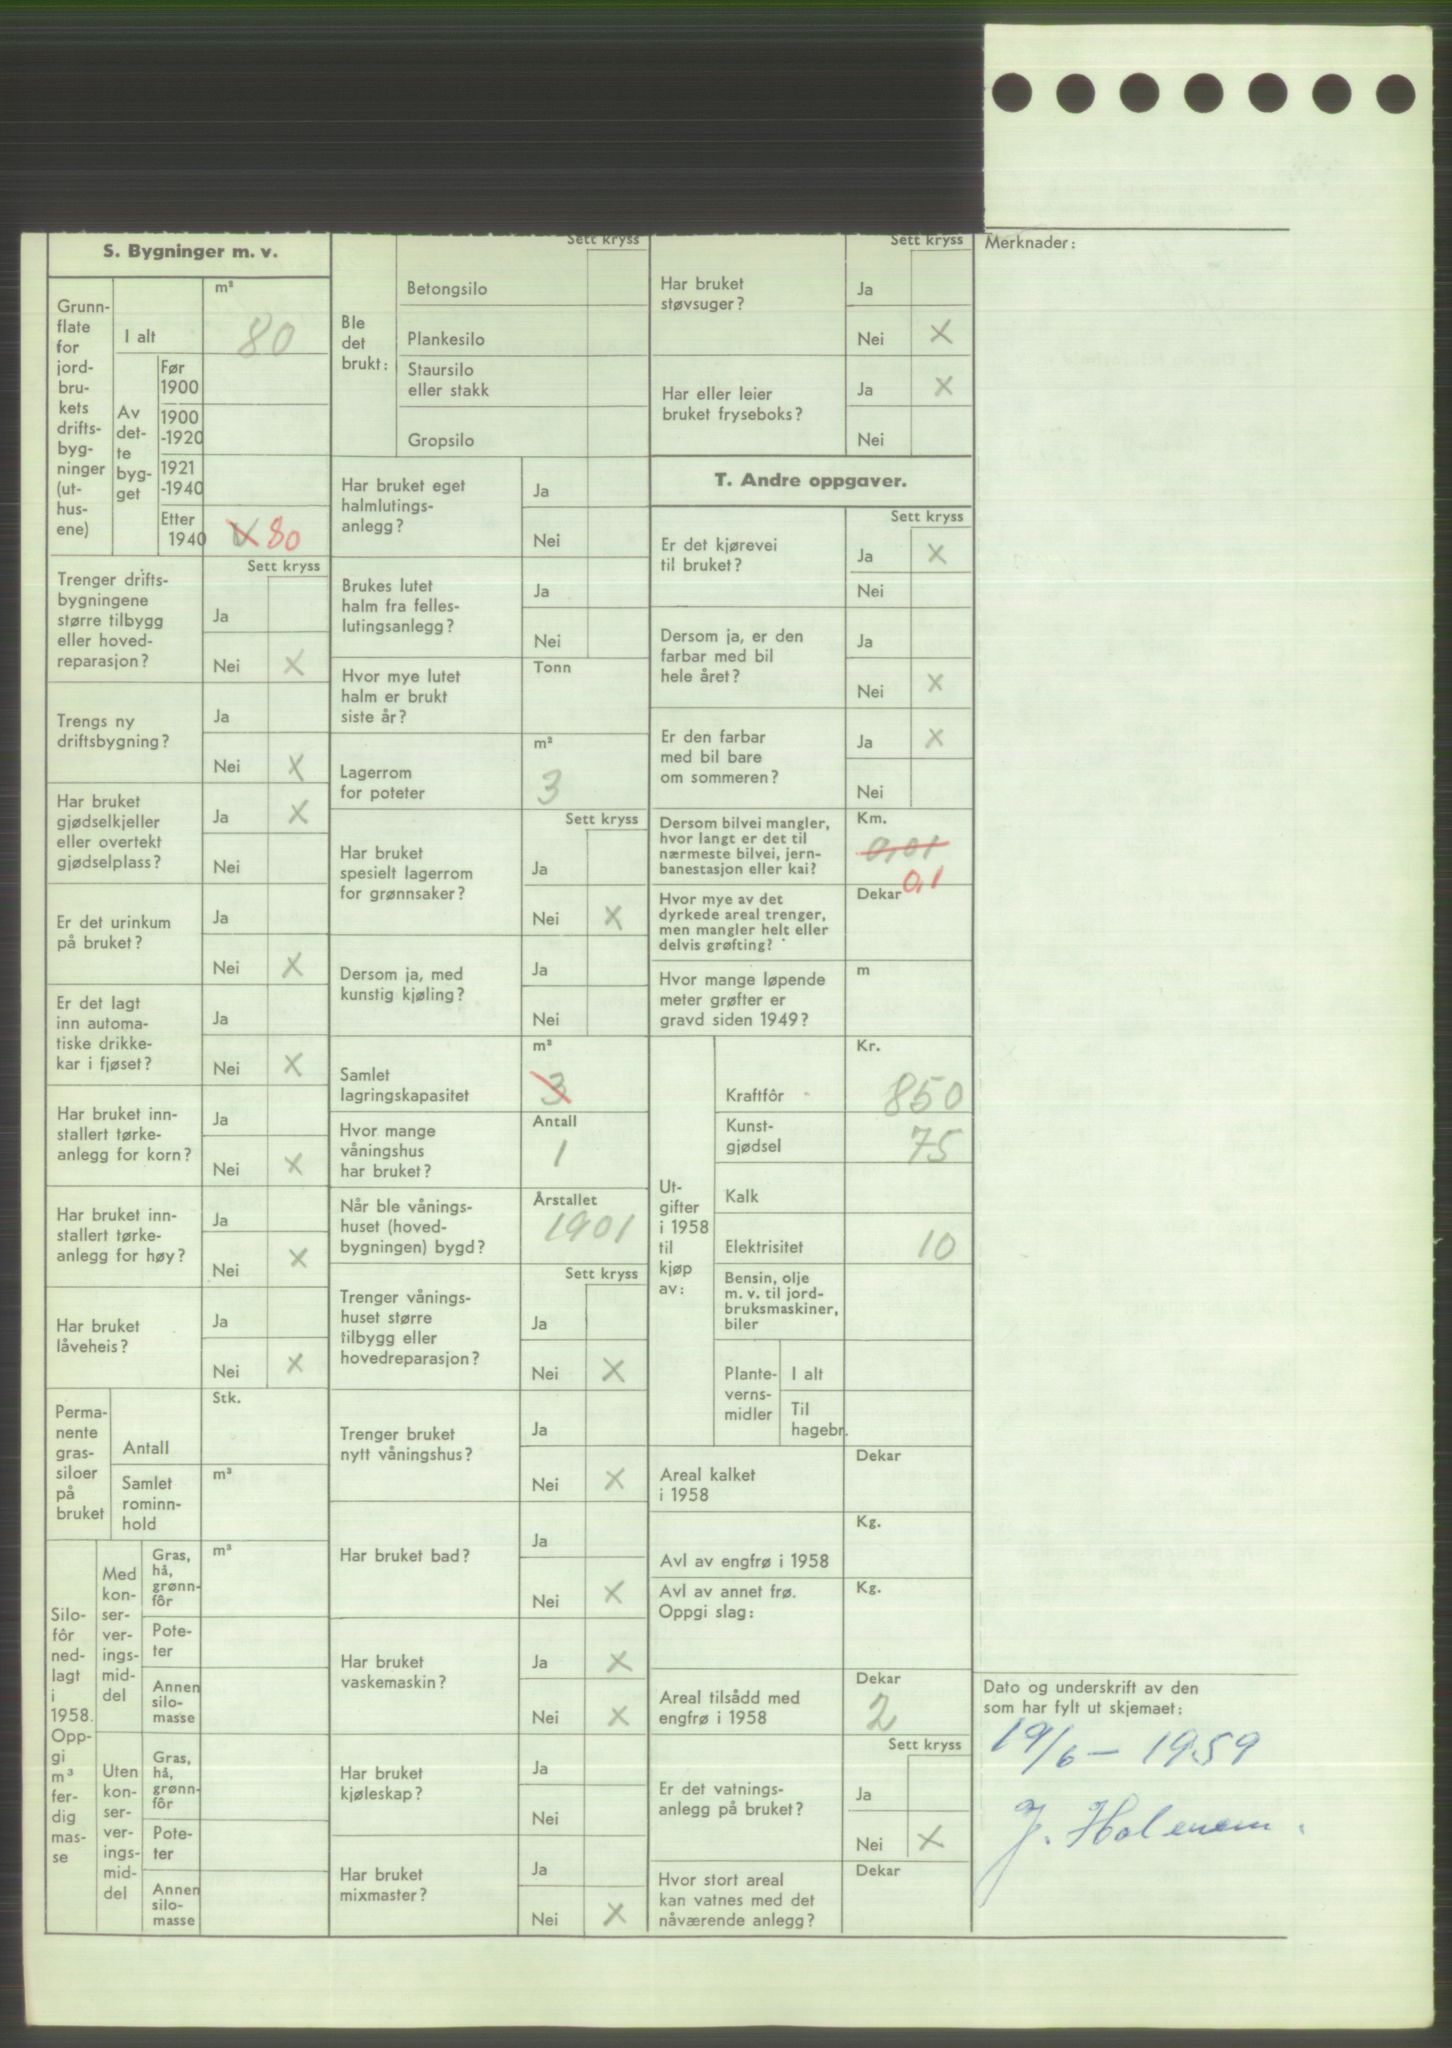 S. Bygninger m. v.
Grunn-
flate
for
jord-
bru-
kets
drifts-
byg-
ninger
(ut-
hus-
ene)
I alt
m²
80
Av
det-
te
byg-
get
Før
1900
1900
-1920
1921
-1940
Etter
1940
X 80
Sett kryss
Trenger drifts-
bygningene
større tilbygg
eller hoved-
reparasjon?
Ja
Nei X
Trengs ny
driftsbygning?
Ja
Nei X
Har bruket
gjødselkjeller
eller overtekt
gjødselplass?
Ja X
Nei
Er det urinkum
på bruket?
Ja
Nei X
Er det lagt
inn automa-
tiske drikke-
kar i fjøset?
Ja
Nei X
Har bruket inn-
stallert tørke-
anlegg for korn?
Ja
Nei X
Har bruket inn-
stallert tørke-
anlegg for høy?
Ja
Nei X
Har bruket
låveheis?
Ja
Nei X
Perma-
nente
gras-
siloer
på
bruket
Stk.
Antall
Samlet
rominn-
hold
m³
Silo-
fôr
ned-
lagt
i
1958.
Opp-
gi
m³
fer-
dig
mas-
se
Med
kon-
ser-
ver-
ings-
mid-
del
Gras,
hå,
grønn-
fôr
m³
Pote-
ter
Annen
silo-
masse
Uten
kon-
ser-
ver-
ings-
mid-
del
Gras,
hå,
grønn-
fôr
Pote-
ter
Annen
silo-
masse
Sett kryss
Ble
det
brukt:
Betongsilo
Plankesilo
Staursilo
eller stakk
Gropsilo
Har bruket eget
halmlutings-
anlegg?
Ja
Nei
Brukes lutet
halm fra felles-
lutingsanlegg?
Ja
Nei
Hvor mye lutet
halm er brukt
siste år?
Tonn
Lagerrom
for poteter
m²
3
Sett kryss
Har bruket
spesielt lagerrom
for grønnsaker?
Ja
Nei X
Dersom ja, med
kunstig kjøling?
Ja
Nei
Samlet
lagringskapasitet
m²
3
Hvor mange
våningshus
har bruket?
Antall
1
Når ble vånings-
huset (hoved-
bygningen) bygd?
Årstallet
1901
Sett kryss
Trenger vånings-
huset større
tilbygg eller
hovedreparasjon?
Ja
Nei X
Trenger bruket
nytt våningshus?
Ja
Nei X
Har bruket bad?
Ja
Nei X
Har bruket
vaskemaskin?
Ja X
Nei X
Har bruket
kjøleskap?
Ja
Nei
Har bruket
mixmaster?
Ja
Nei X
Sett kryss
Har bruket
støvsuger?
Ja
Nei X
Har eller leier
bruket fryseboks?
Ja X
Nei
T. Andre oppgaver.
Sett kryss
Er det kjørevei
til bruket?
Ja X
Nei
Dersom ja, er den
farbar med bil
hele året?
Ja
Nei X
Er den farbar
med bil bare
om sommeren?
Ja X
Nei
Dersom bilvei mangler,
hvor langt er det til
nærmeste bilvei, jern-
banestasjon eller kai?
Km.
0,01
0,1
Hvor mye av det
dyrkede areal trenger,
men mangler helt eller
delvis grøfting?
Dekar
Hvor mange løpende
meter grøfter er
gravd siden 1949?
m
Ut-
gifter
i 1958
til
kjøp
av:
Kr.
Kraftfôr 850
Kunst-
gjødsel 75
Kalk
Elektrisitet 10
Bensin, olje
m. v. til jord-
bruksmaskiner,
biler
Plante-
verns-
midler
I alt
Til
hagebr.
Areal kalket
i 1958
Dekar
Avl av engfrø i 1958
Kg.
Avl av annet frø.
Oppgi slag:
Kg.
Areal tilsådd med
engfrø i 1958
Dekar
2
Sett kryss
Er det vatnings-
anlegg på bruket?
Ja
Nei X
Hvor stort areal
kan vatnes med det
nåværende anlegg?
Dekar
Merknader:
Dato og underskrift av den
som har fylt ut skjemaet:
19/6 – 1959
J. Holmem.